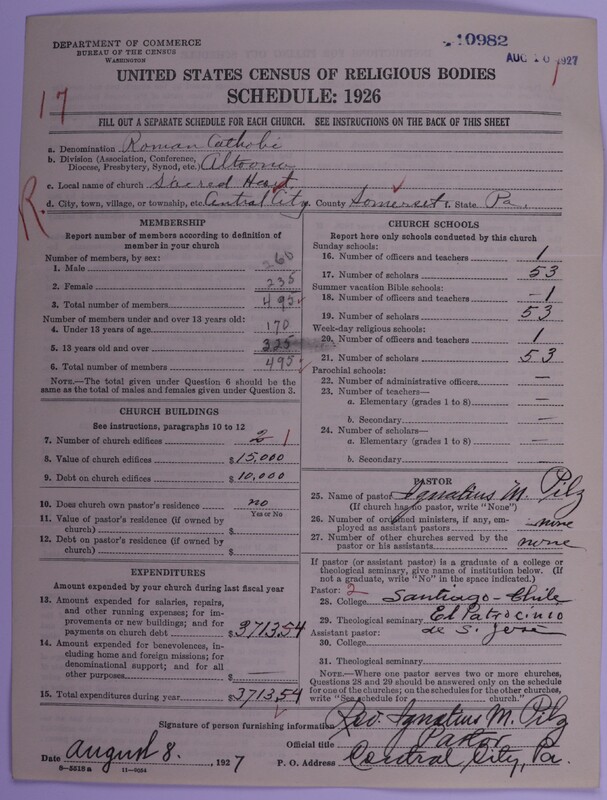 DEPARTMENT OF COMMERCE
BUREAU OF THE CENSUS
WASHINGTON
10982
AUG 10 1927
UNITED STATES CENSUS OF RELIGIOUS BODIES
SCHEDULE: 1926
17
FILL OUT A SEPARATE SCHEDULE FOR EACH CHURCH. SEE INSTRUCTIONS ON THE BACK OF THIS SHEET
a. Denomination Roman Catholic
b. Division (Association, Conference, Diocese, Presbytery, Synod, etc.) Altoona
c. Local name of church Sacred Heart
R. d. City, town, village, or township, etc. Central City County Somerset State Pa.
MEMBERSHIP
Report number of members according to definition of member in your church
Number of members, by sex:
1. Male 260
2. Female 235
3. Total number of members 495
Number of members under and over 13 years old:
4. Under 13 years of age 170
5. 13 years old and over 325
6. Total number of members 495
NOTE.—The total given under Question 6 should be the same as the total of males and females given under Question 3.
CHURCH BUILDINGS
See instructions, paragraphs 10 to 12
7. Number of church edifices 2 1
8. Value of church edifices $15,000
9. Debt on church edifices $10,000
10. Does church own pastor's residence no
Yes or No
11. Value of pastor's residence (if owned by church) $
12. Debt on pastor's residence (if owned by church) $
EXPENDITURES
Amount expended by your church during last fiscal year
13. Amount expended for salaries, repairs, and other running expenses; for improvements or new buildings; and for payments on church debt $3713.54
14. Amount expended for benevolences, including home and foreign missions; for denominational support; and for all other purposes $ —
15. Total expenditures during year $3713.54
CHURCH SCHOOLS
Report here only schools conducted by this church
Sunday schools:
16. Number of officers and teachers 1
17. Number of scholars 53
Summer vacation Bible schools:
18. Number of officers and teachers 1
19. Number of scholars 53
Week-day religious schools:
20. Number of officers and teachers 1
21. Number of scholars 53
Parochial schools:
22. Number of administrative officers —
23. Number of teachers—
a. Elementary (grades 1 to 8) —
b. Secondary —
24. Number of scholars—
a. Elementary (grades 1 to 8) —
b. Secondary —
PASTOR
25. Name of pastor Ignatius M. Pilz
(If church has no pastor, write "None")
26. Number of ordained ministers, if any, employed as assistant pastors none
27. Number of other churches served by the pastor or his assistants none
If pastor (or assistant pastor) is a graduate of a college or theological seminary, give name of institution below. (If not a graduate, write "No" in the space indicated.)
Pastor: 2
28. College Santiago - Chile
29. Theological seminary El Patrocinio de S. José
Assistant pastor:
30. College
31. Theological seminary
NOTE.—Where one pastor serves two or more churches, Questions 28 and 29 should be answered only on the schedule for one of the churches; on the schedules for the other churches, write "See schedule for church."
Signature of person furnishing information Rev. Ignatius M. Pilz
Official title Pastor
Date August 8. 1927 P. O. Address Central City, Pa.
8—5518 a 11—9054